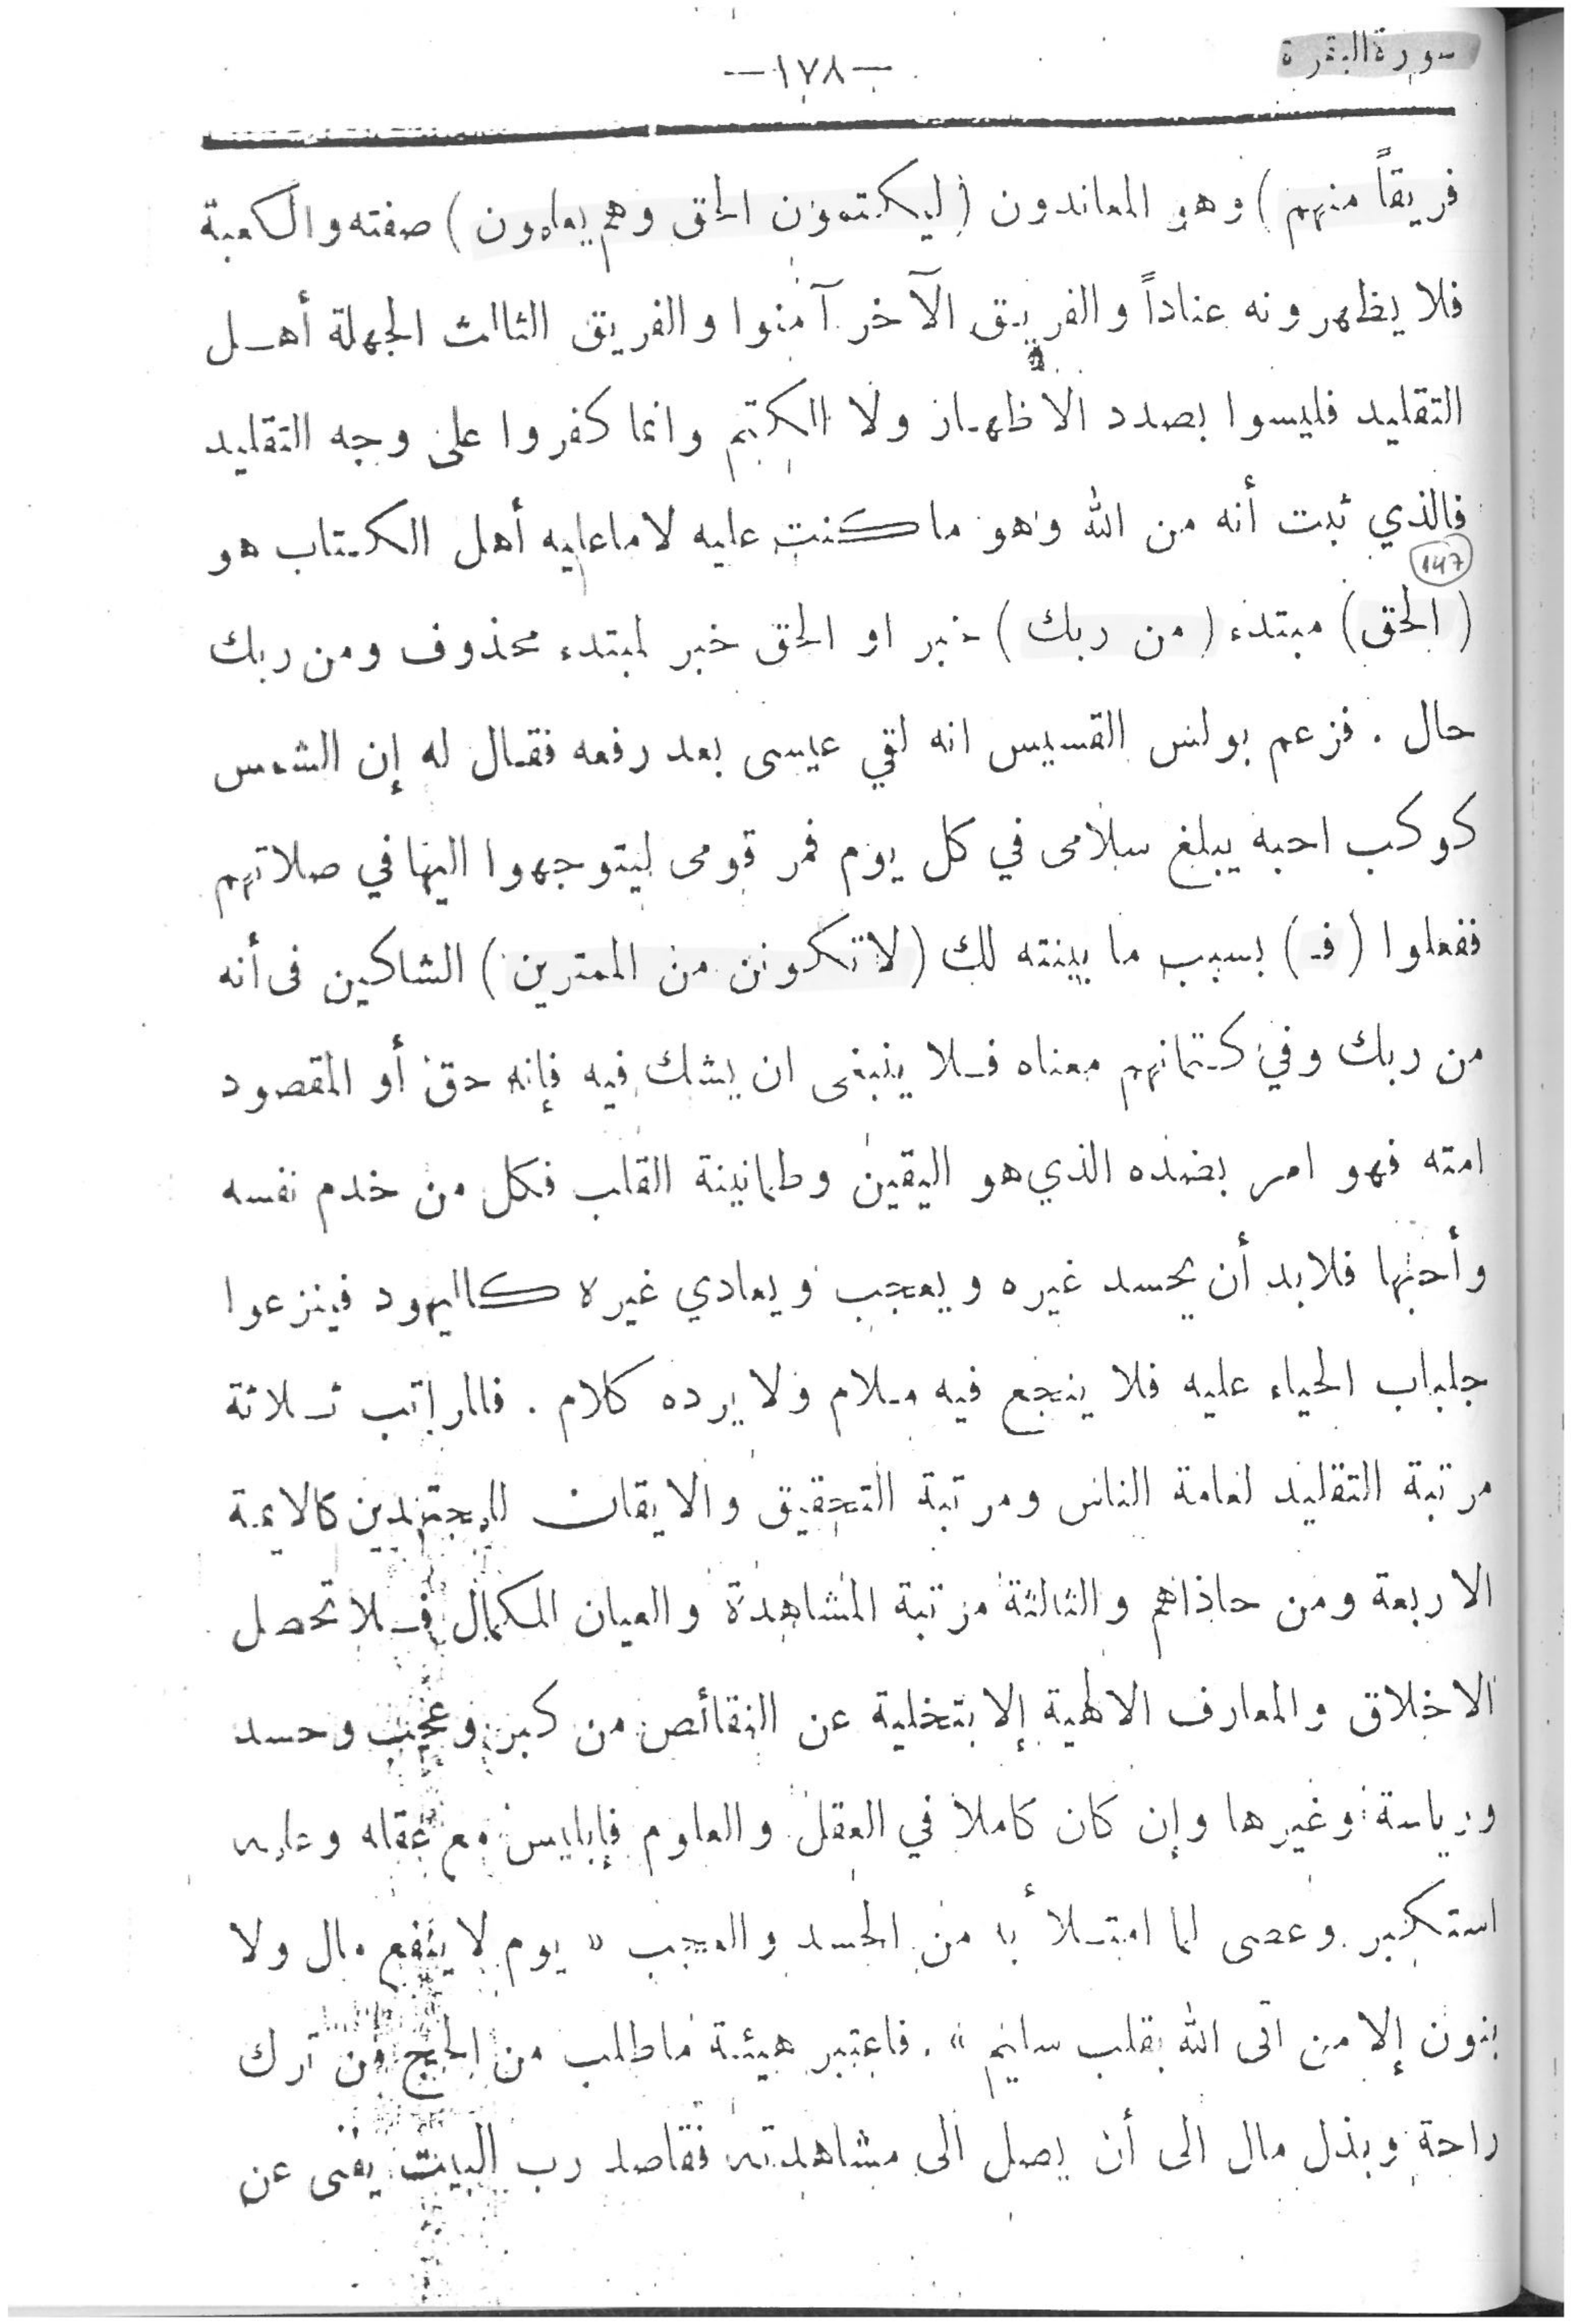 سورة البقرة
—١٧٨—
فريقاً منهم ) وهو المعاندون ( ليكتمون الحق وهم يعلمون ) صفته والكعبة
فلا يظهرونه عناداً والفريق الآخر آمنوا والفريق الثالث الجهلة أهل
التقليد فليسوا بصدد الاظهار ولا الكتم وانما كفروا على وجه التقليد
فالذي ثبت أنه من الله وهو ما كنت عليه لا ما عليه أهل الكتاب هو
147
( الحق ) مبتدء ( من ربك ) خبر او الحق خبر لمبتدء محذوف ومن ربك
حال . فزعم بولس القسيس انه لقي عيسى بعد رفعه فقال له إن الشمس
كوكب احبه يبلغ سلامى في كل يوم فمر قومى ليتوجهوا اليها في صلاتهم
ففعلوا ( فـ ) بسبب ما بينته لك ( لا تكونن من الممترين ) الشاكين فى أنه
من ربك وفي كتمانهم معناه فلا ينبغى ان يشك فيه فإنه حق أو المقصود
امته فهو امر بضده الذي هو اليقين وطمانينة القلب فكل من خدم نفسه
وأحبها فلابد أن يحسد غيره ويعجب ويعادي غيره كاليهود فينزعوا
جلباب الحياء عليه فلا ينجع فيه ملام ولا يرده كلام . فالمراتب ثلاثة
مرتبة التقليد لعامة الناس ومرتبة التحقيق والايقان للمجتهدين كالايمة
الاربعة ومن حاذاهم والثالثة مرتبة المشاهدة والعيان المكمال فلا تحصل
الاخلاق والمعارف الالهية إلا بتخلية عن النقائص من كبر وعجب وحسد
ورياسة وغيرها وإن كان كاملا في العقل والعلوم فإبليس مع عقله وعلمه
استكبر وعصى لما امتلأ به من الحسد والعجب « يوم لا ينفع مال ولا
بنون إلا من اتى الله بقلب سليم » . فاعتبر هيئة ما طلب من الحج من ترك
راحة وبذل مال الى أن يصل الى مشاهدته فقاصد رب البيت يفنى عن